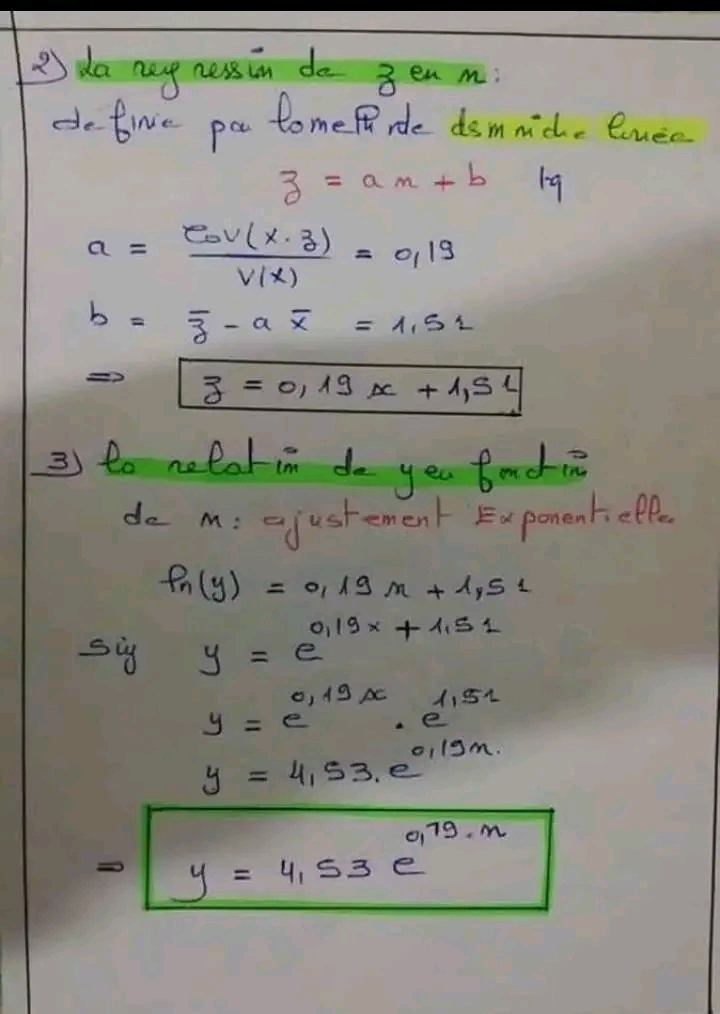 2) La regressin de z en x :
definie pa la methode des moindre carrée
z = a x + b tq
a = Cov(x.z) / V(x) = 0,19
b = z̄ - a x̄ = 1,51
⇒ z = 0,19 x + 1,51
3) la relatin de y en fonctin
de x : ajustement Exponentielle
ln(y) = 0,19 x + 1,51
Sig y = e^(0,19x + 1,51)
y = e^(0,19x) . e^(1,51)
y = 4,53. e^(0,19x).
⇒ y = 4,53 e^(0,19.x)